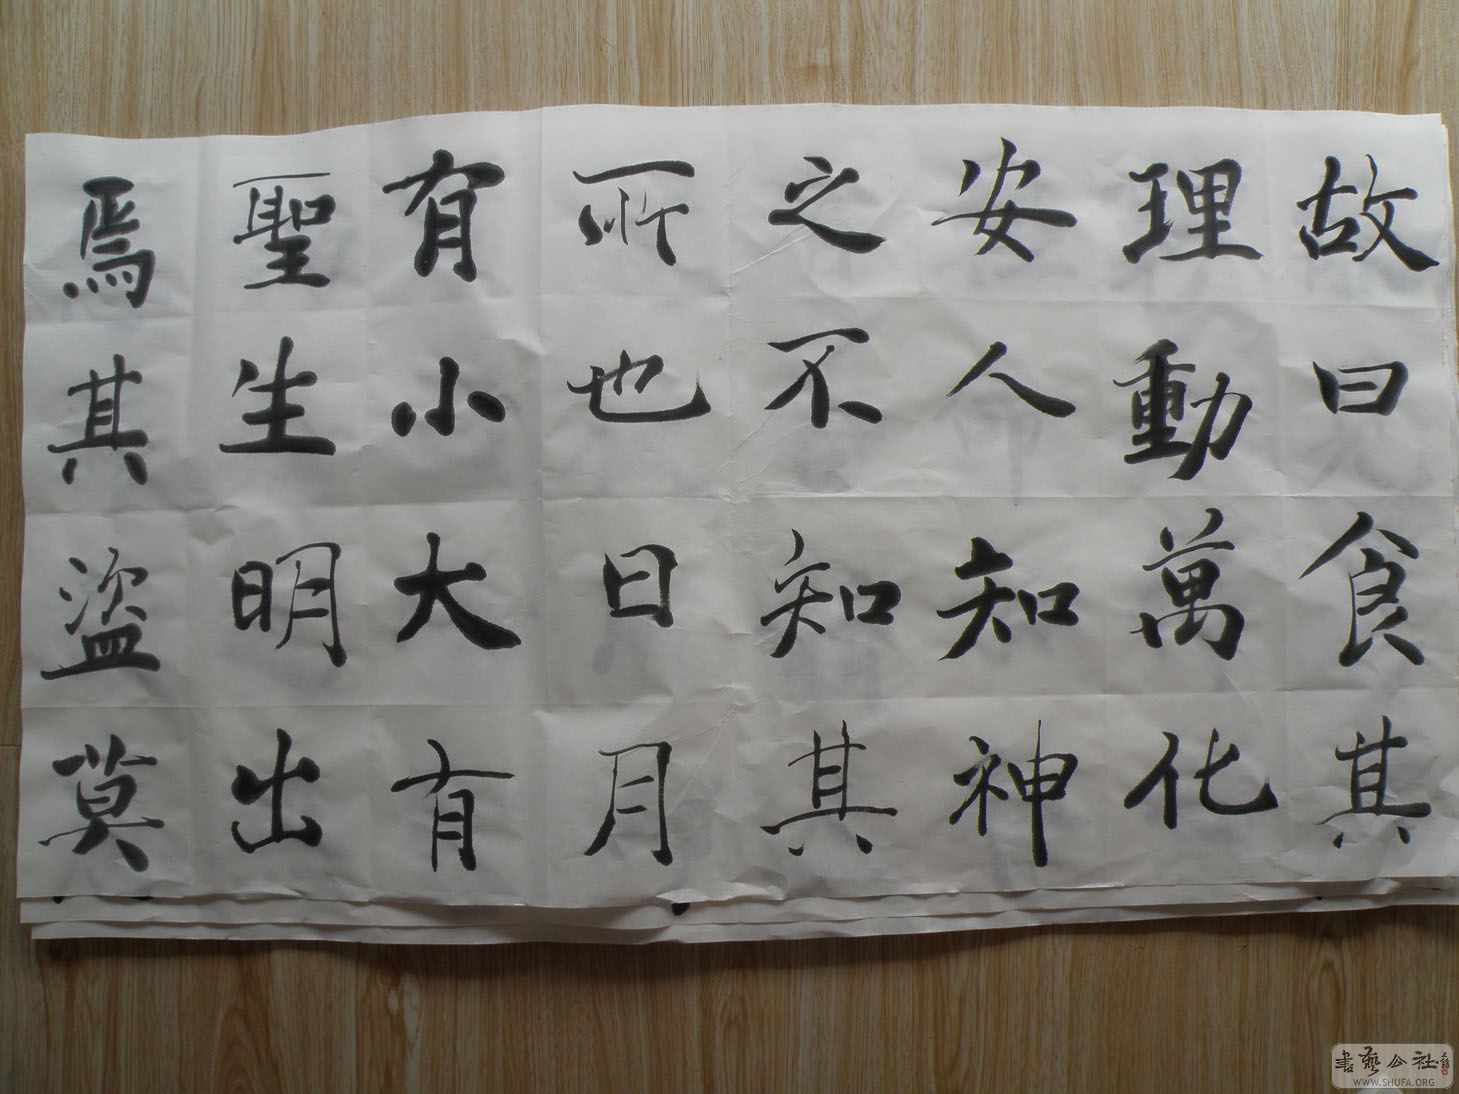 故曰食其
理動萬化
安人知神
之不知其
所也日月
有小大有
聖生明出
焉其盜莫
書藝公社
WWW.SHUFA.ORG